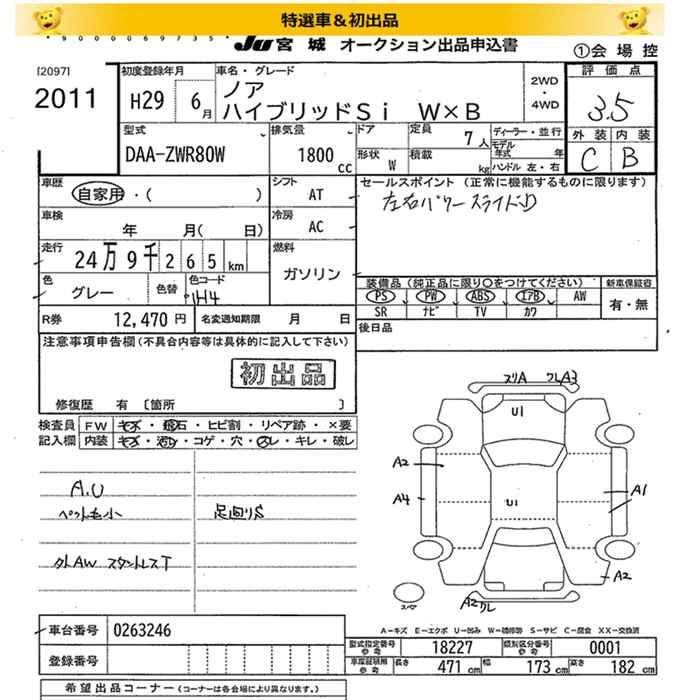 特選車&初出品
*9000069735*
JU宮城 オークション出品申込書
①会場控
[2097]
2011
初度登録年月
H29 6月
車名・グレード
ノア
ハイブリッドSi W×B
2WD
・
4WD
評価点
3.5
外装 内装
C B
型式
DAA-ZWR80W
排気量
1800 cc
ドア
形状 W
定員 7人
積載 kg
ディーラー・並行
モデル年式 年
ハンドル 左・右
車歴
自家用・( )
シフト
AT
セールスポイント (正常に機能するものに限ります)
左右パワースライドD
車検
年 月( 日)
冷房
AC
走行
24万9千265km
燃料
ガソリン
色
グレー
色替
色コード
1H4
装備品 (純正品に限り○をつけてください)
PS PW ABS エアB AW
SR ナビ TV カワ
新車保証書
有・無
R券 12,470円
名変通知期限 月 日
後日品
注意事項申告欄(不具合内容等は具体的に記入して下さい)
初出品
修復歴 有 〔箇所 〕
検査員 FW キズ・飛石・ヒビ割・リペア跡・×要
記入欄 内装 キズ・汚レ・コゲ・穴・スレ・キレ・破レ
A.U
ペット毛小
足回りS
外AW スタットレスT
スリA ワレA3
U1
A2
A4
U1
A1
A2
A2ワレ
スペア
A-キズ E-エクボ U-凹み W-補修跡 S-サビ C-腐食 XX-交換済
車台番号 0263246
登録番号
型式指定番号参考 18227
類別区分番号参考 0001
車庫証明用参考 長さ 471cm 幅 173cm 高さ 182cm
希望出品コーナー(コーナーは各会場により異なります。)